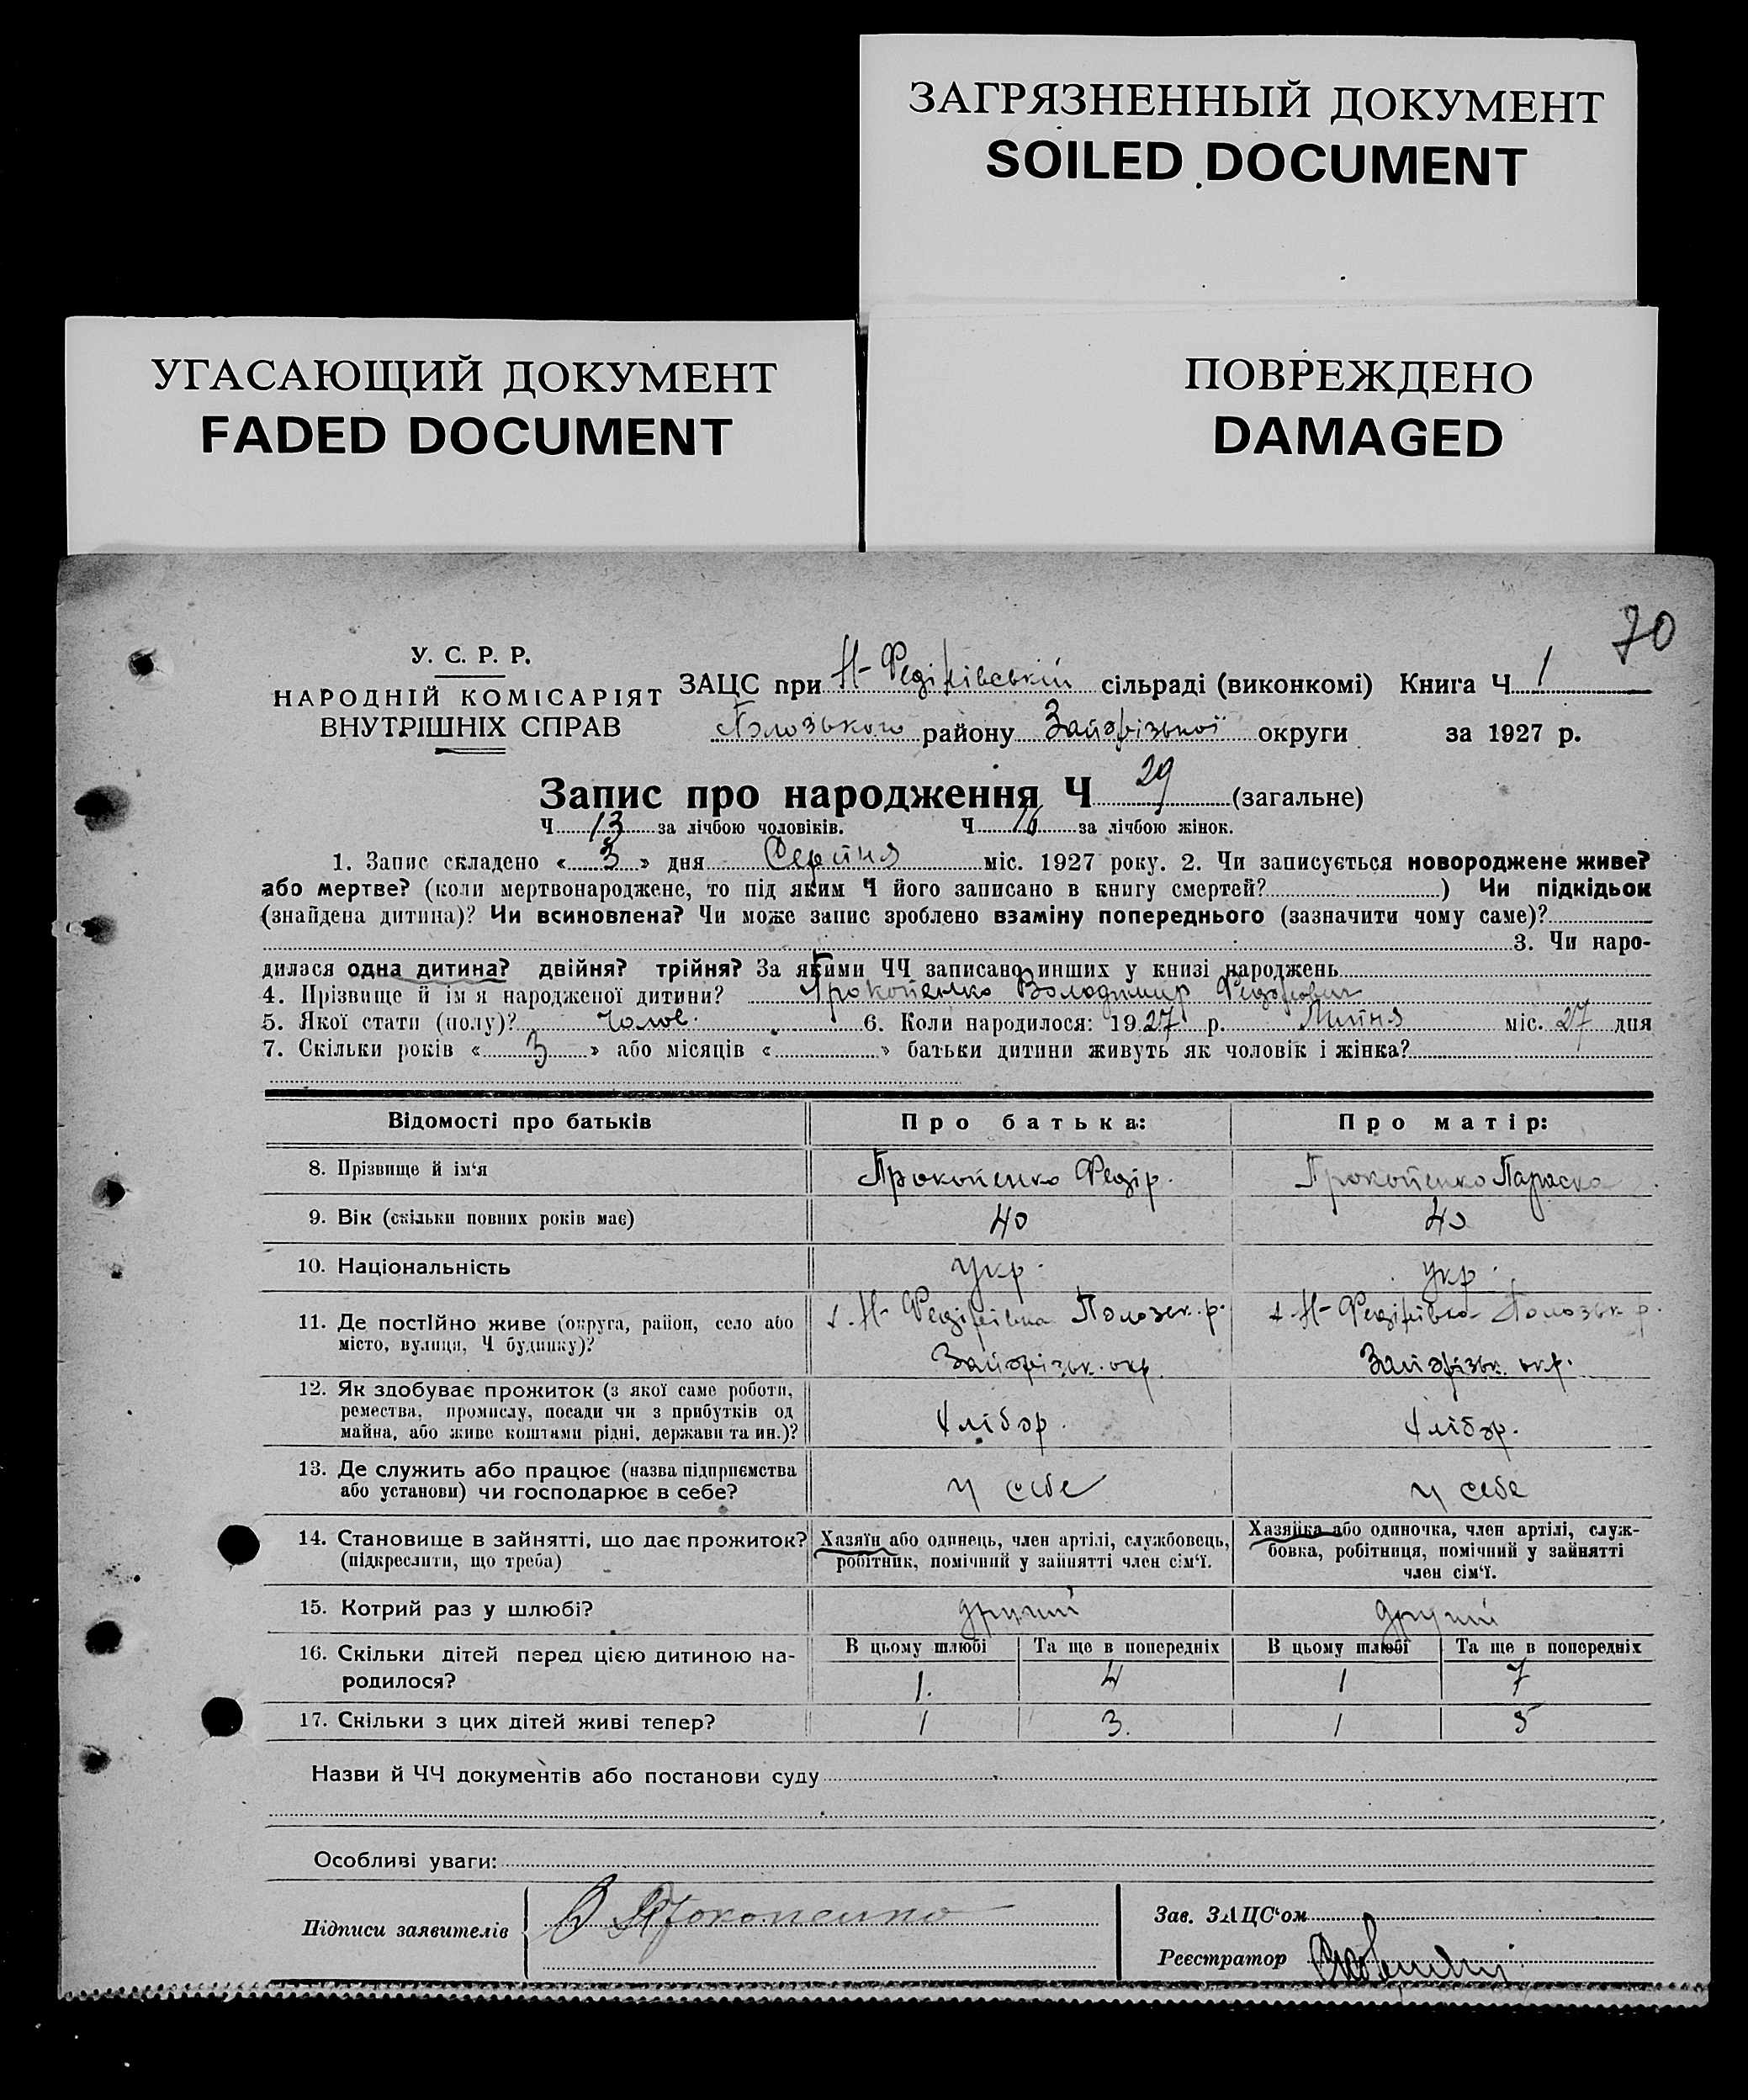 ЗАГРЯЗНЕННЫЙ ДОКУМЕНТ
SOILED DOCUMENT
УГАСАЮЩИЙ ДОКУМЕНТ
FADED DOCUMENT
ПОВРЕЖДЕНО
DAMAGED
70
У. С. Р. Р.
НАРОДНІЙ КОМІСАРІЯТ
ВНУТРІШНІХ СПРАВ
ЗАЦС при Н-Федірівській сільраді (виконкомі) Книга Ч 1
Полозького району Запорізької округи за 1927 р.
Запис про народження Ч 29 (загальне)
Ч 13 за лічбою чоловіків. Ч 16 за лічбою жінок.
1. Запис складено « 3 » дня Серпня міс. 1927 року. 2. Чи записується новороджене живе?
або мертве? (коли мертвонароджене, то під яким Ч його записано в книгу смертей? ) Чи підкідьок
(знайдена дитина)? Чи всиновлена? Чи може запис зроблено взаміну попереднього (зазначити чому саме)?
3. Чи наро-
дилася одна дитина? двійня? трійня? За якими ЧЧ записано инших у книзі народжень
4. Прізвище й ім'я народженої дитини? Прокопенко Володимир Федорович
5. Якої стати (полу)? Чолов. 6. Коли народилося: 1927 р. Липня міс. 27 дня
7. Скільки років « 3 » або місяців « » батьки дитини живуть як чоловік і жінка?
Відомості про батьків Про батька: Про матір:
8. Прізвище й ім'я Прокопенко Федір. Прокопенко Параска
9. Вік (скільки повних років має) 40 40
10. Національність Укр. укр.
11. Де постійно живе (округа, район, село або
місто, вулиця, Ч будинку)?
с. Н-Федірівка Полозьк. р.
Запорізьк. окр.
с. Н-Федірівка Полозьк р.
Запорізьк. окр.
12. Як здобуває прожиток (з якої саме роботи,
ремества, промислу, посади чи з прибутків од
майна, або живе коштами рідні, держави та ин.)?
Хлібор. Хлібор.
13. Де служить або працює (назва підприємства
або установи) чи господарює в себе?
у себе у себе
14. Становище в зайнятті, що дає прожиток?
(підкреслити, що треба)
Хазяїн або одинець, член артілі, службовець,
робітник, помічний у зайнятті член сім'ї.
Хазяйка або одиночка, член артілі, служ-
бовка, робітниця, помічний у зайнятті
член сім'ї.
15. Котрий раз у шлюбі? другий другий
16. Скільки дітей перед цією дитиною на-
родилося?
В цьому шлюбі Та ще в попередніх В цьому шлюбі Та ще в попередніх
1. 4 1 7
17. Скільки з цих дітей живі тепер? 1 3. 1 5
Назви й ЧЧ документів або постанови суду
Особливі уваги:
Підписи заявителів Прокопенко
Зав. ЗАЦС'ом
Реєстратор